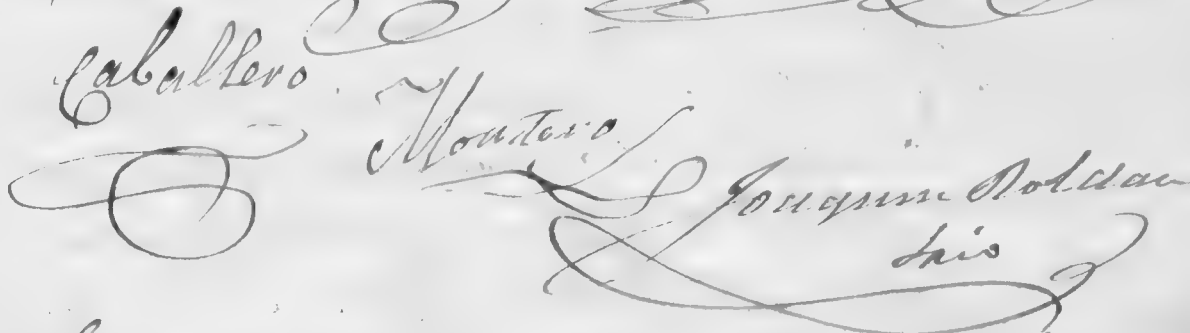 Caballero
Montero
Joaquin Roldan
Srio